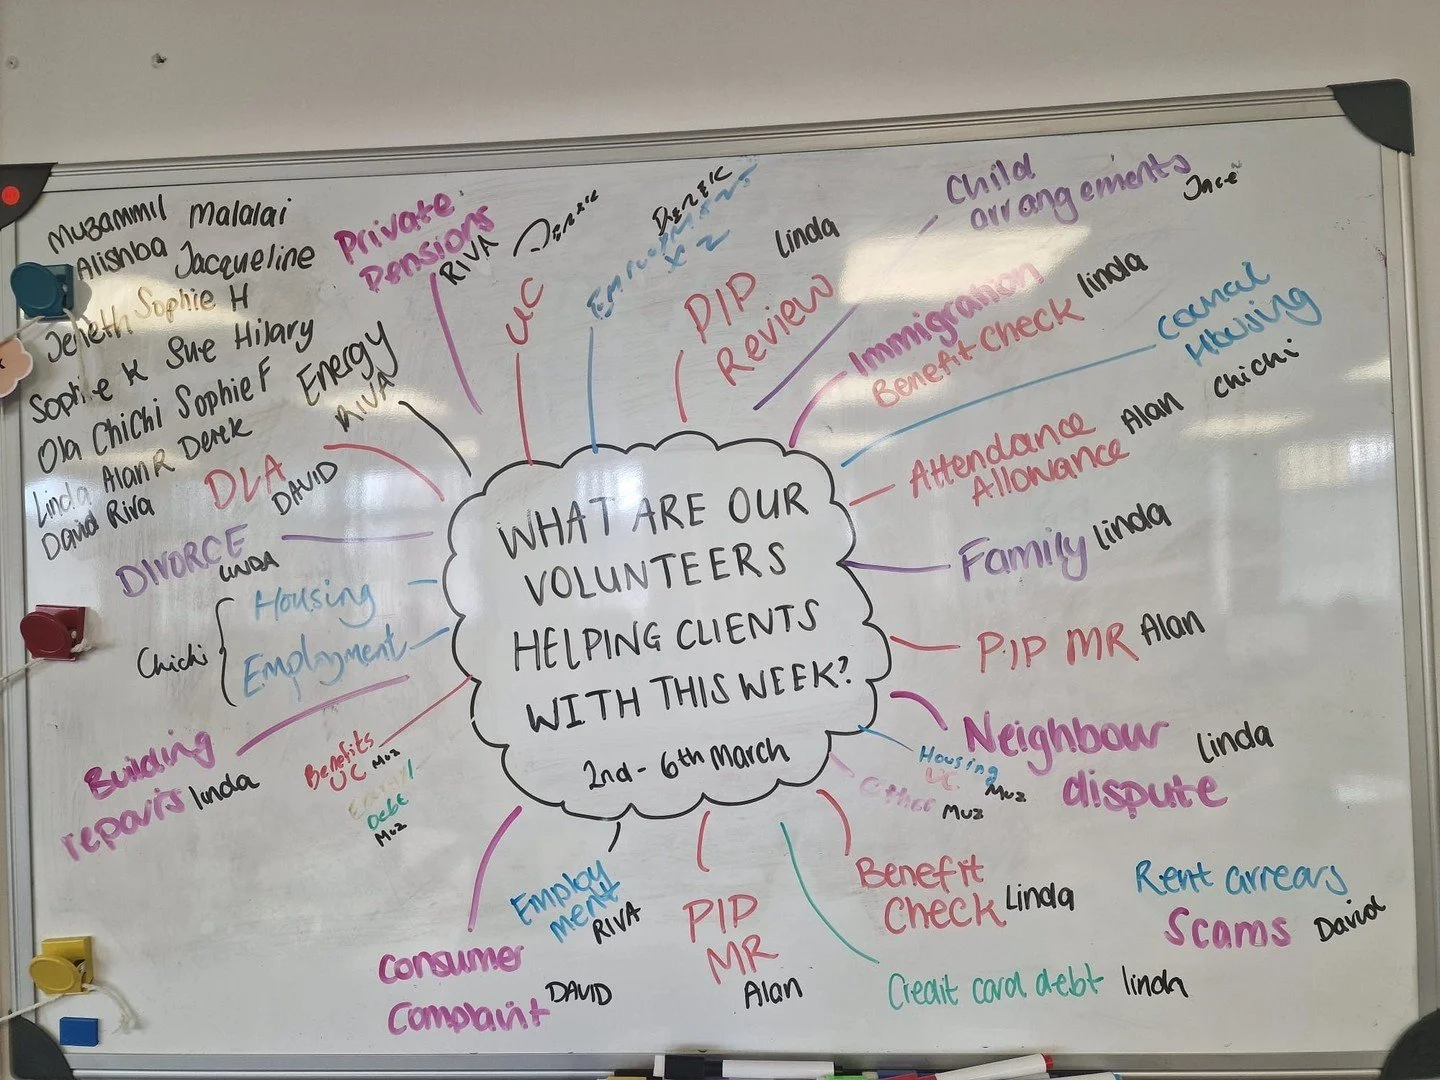 Muzammil Malalai
Alishba Jacqueline
Jeneth Sophie H
Sophie K Sue Hilary
Ola ChiChi Sophie F
Linda Alan R Derek
David Riva
Private
Pensions
RIVA
UC
Derek
Employment
x 2
Derek
PIP
Review
Linda
Child
arrangements
Immigration
Benefit Check
linda
Council
Housing
chichi
Attendance
Allowance
Alan
Family linda
PIP MR Alan
Neighbour
dispute
Linda
Housing
UC Muz
Other Muz
Energy
RIVA
DLA
DAVID
DIVORCE
LINDA
Chichi
Housing
Employment
Building
repairs linda
Benefits
UC Muz
Debt
Muz
WHAT ARE OUR
VOLUNTEERS
HELPING CLIENTS
WITH THIS WEEK?
2nd - 6th March
Consumer
Complaint DAVID
Employ
ment
RIVA
PIP
MR
Alan
Benefit
Check Linda
Credit card debt linda
Rent arrears
Scams David